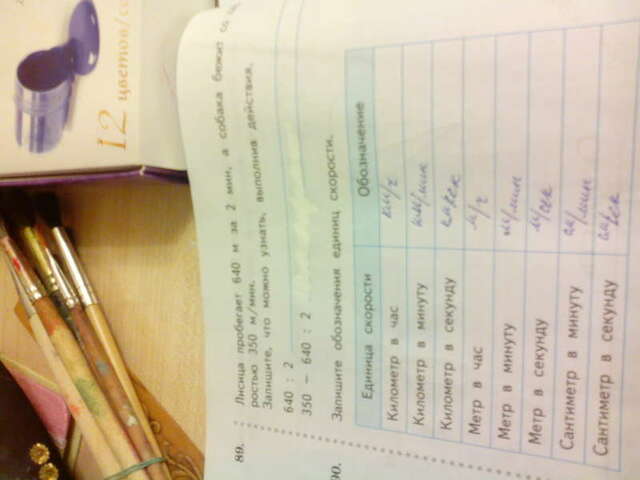 12 цветов/co
89. Лисица пробегает 640 м за 2 мин, а собака бежит со ско-
ростью 350 м/мин.
Запишите, что можно узнать, выполнив действия.
640 : 2
350 – 640 : 2
90. Запишите обозначения единиц скорости.
Единица скорости Обозначение
Километр в час км/ч
Километр в минуту км/мин
Километр в секунду км/сек
Метр в час м/ч
Метр в минуту м/мин
Метр в секунду м/сек
Сантиметр в минуту см/мин
Сантиметр в секунду см/сек